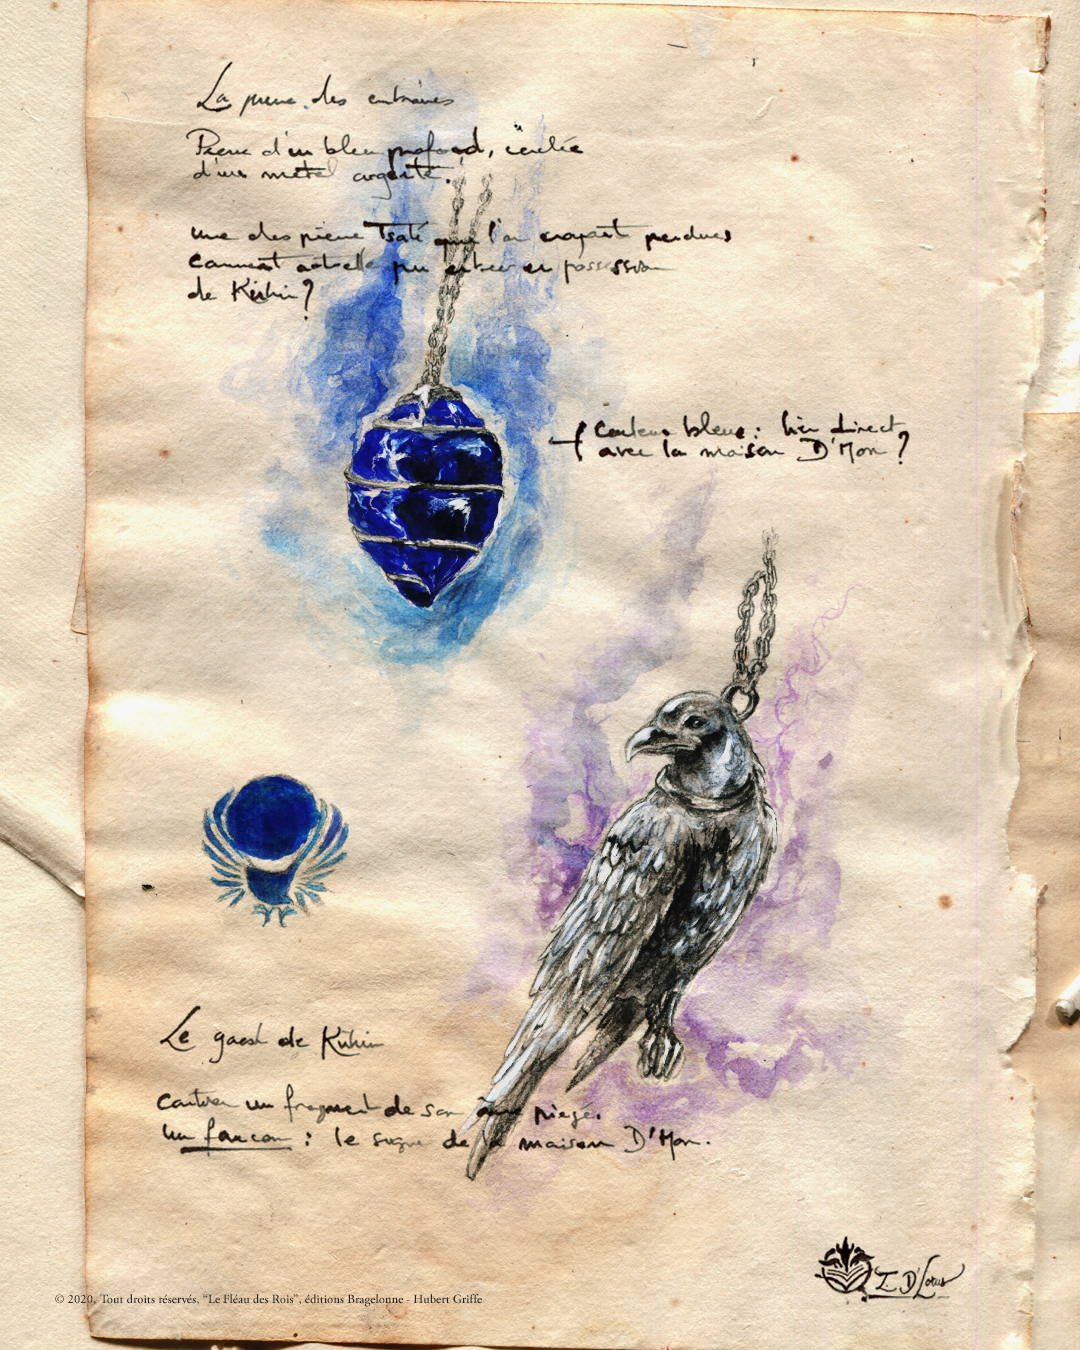 La pierre des
Pierre d'un bleu profond, cerclée
d'un métal argenté.
une des pierre Tsaté que l'on croyait perdues
Comment a-t-elle pu entrer en possession
de Kühin?
Couleur bleue : lien direct
avec la maison D'Mon ?
Le gaest de Kühin
Contien un fragment de son âme piégé.
Un faucon : le signe de la maison D'Mon.
D'Lorus
© 2020, Tout droits réservés, “Le Fléau des Rois”, éditions Bragelonne - Hubert Griffe